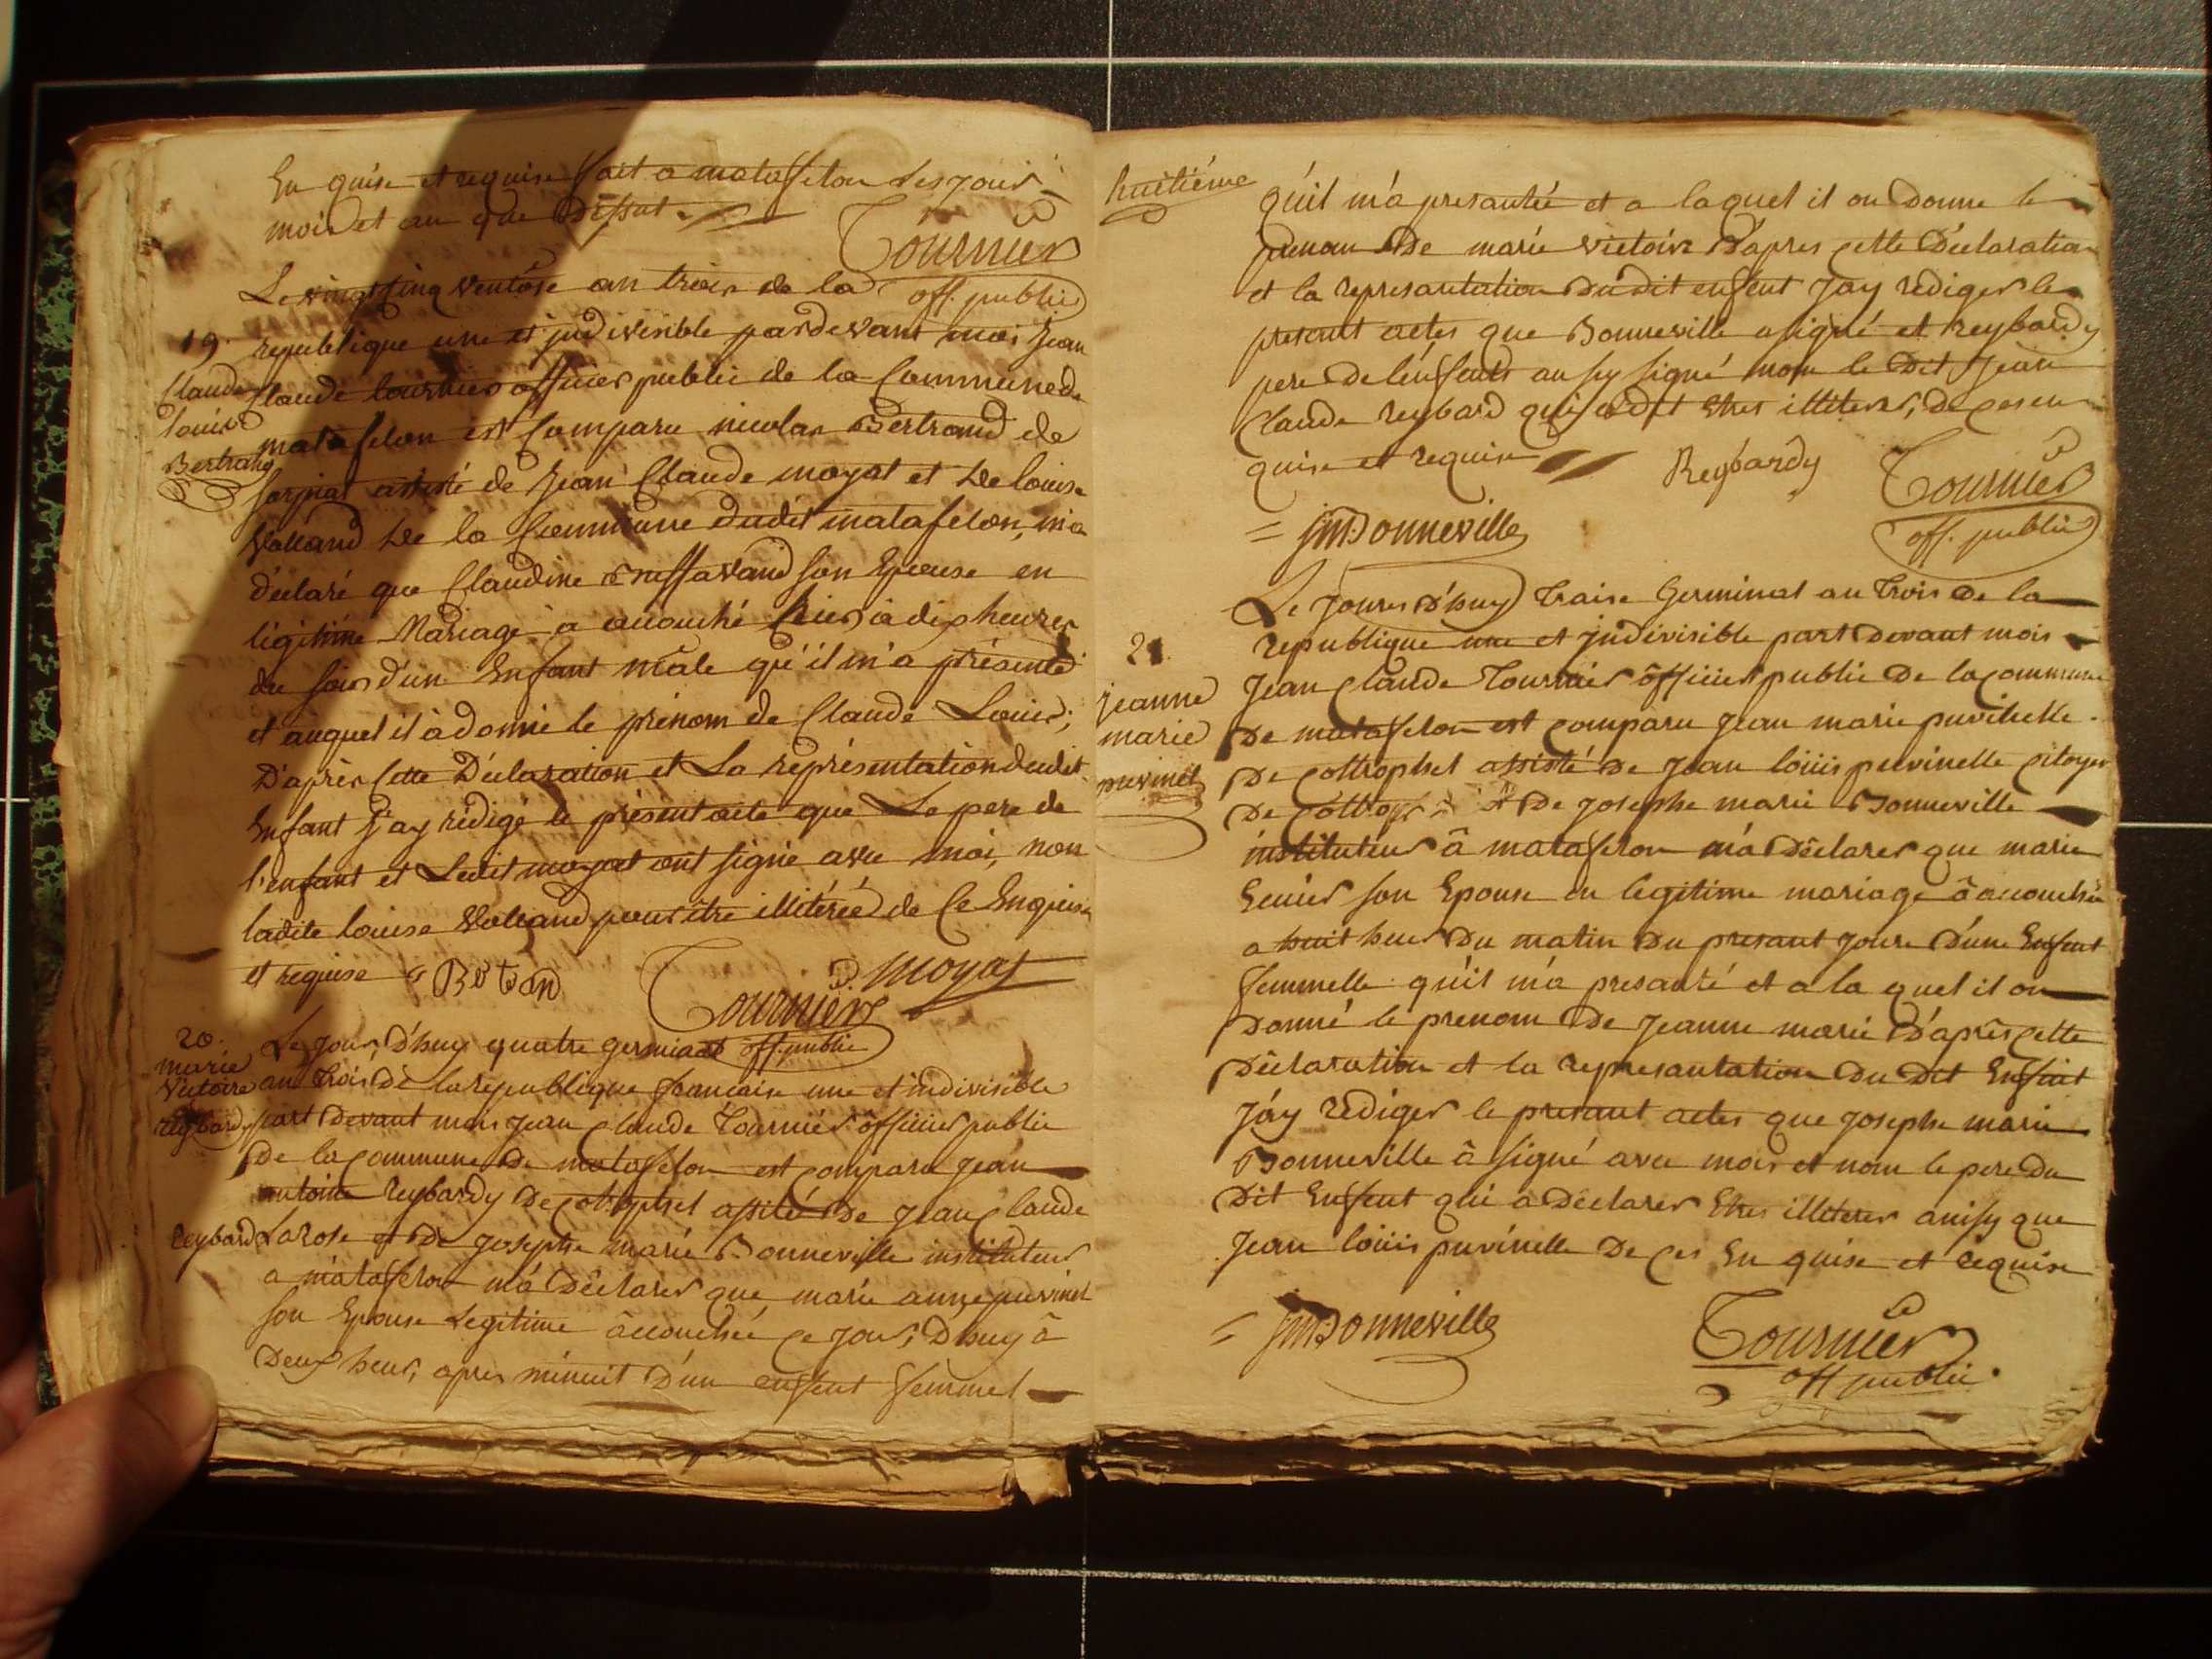 En quise et requise fait a matafelon Les jour
mois et an que dessut
Tournier
off. public
19.
Claude
louis
Bertrand
Le vingt cinq Ventôse an trois de la
republique une et indivisible pardevant moi Jean
Claude tournier officier public de la Commune de
matafelon est Comparu nicolas Bertrand de
assisté de Jean Claude moyat et de louise
Volland de la Commune dudit matafelon, m'a
déclaré que Claudine son Epouse en
légitime Mariage à accouché hier à dix heures
du soir d'un Enfant mâle qu'il m'a présenté
et auquel il à donné le prénom de Claude Louis;
D'après Cette Déclaration et La représentation dudit
Enfant j'ay rédigé le présent acte que Le pere de
l'enfant et Ledit moyat ont signé avec moi, non
ladite louise Volland pour être illitérée de Ce Enquise
et requise
D. moyat
Tournier
off. public
20.
marie
Victoire
reybardy
Le jour D'huy quatre germinal
an trois De la republique francaise une et indivisible
part Devant mois jean claude Tournier officier public
De la commune De matafelon est comparu jean
antoine Reybardy De assité De jean claude
reybard Larose et De josephe marie Bonneville instituteur
a matafelon m'a Déclarer que marie anne puvinel
son Epouse Legitime accouchée ce jour, D'huy â
Deux heur, apres minuit D'un enfent femmel
huitiéme
qu'il m'a presantée et a laquel il on Donne le
prenom De marie victoire D'apres cette Déclaration
et la represantation Dudit enfent jay rediger le
presant actes que Bonneville a signé et reybardy
pere De l'enfents ausy signé nom le Dit Jean
Claude reybard qui a dit Etres illiterer, de ces en
quise et requise
Reybardy
Tournier
off. public
= jmBonneville
21.
jeanne
marie
puvinel
Le jours D'huy traise Germinal an trois De la
republique une et indivisible part Devant mois
Jean claude Tournier ôfficier public De la commune
De matafelon est comparu jean marie puvinelle
De assisté De jean loüis puvinelle citoyen
De et De josephe marie Bonneville
instituteur â matafelon m'a Dêclarer que marie
son Epouse en legitime mariage â accouchée
a huit heur Du matin Du presant jour D'une Enfent
femmelle qu'il m'a presanté et a la quel il on
Donné le prenom De jeanne marie D'après cette
Dêclaration et la represantation Du Dit Enfent
J'ay rediger le presant actes que josephe marie
Bonneville â signé avec mois et nom le pere Du
Dit Enfent qui a Dêclarer Etres illiterer ausy que
jean loüis puvinelle De ces En quise et requise
= jmBonneville
Tournier
off public